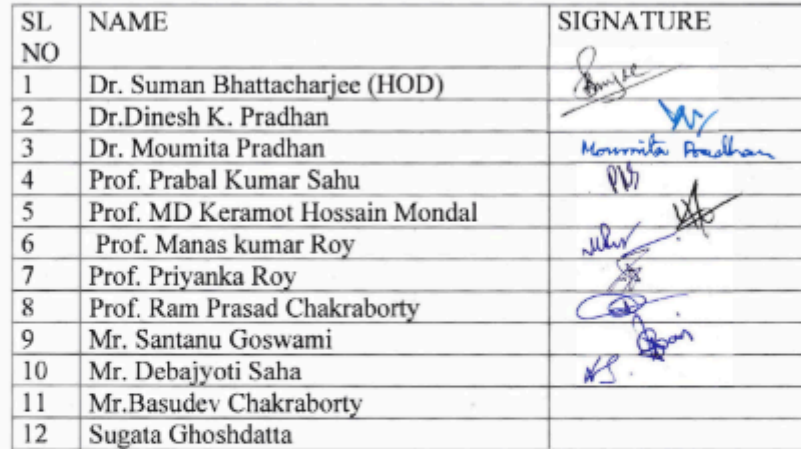 SL NO NAME SIGNATURE
1 Dr. Suman Bhattacharjee (HOD)
2 Dr.Dinesh K. Pradhan
3 Dr. Moumita Pradhan Moumita Pradhan
4 Prof. Prabal Kumar Sahu
5 Prof. MD Keramot Hossain Mondal
6 Prof. Manas kumar Roy
7 Prof. Priyanka Roy
8 Prof. Ram Prasad Chakraborty
9 Mr. Santanu Goswami
10 Mr. Debajyoti Saha
11 Mr.Basudev Chakraborty
12 Sugata Ghoshdatta